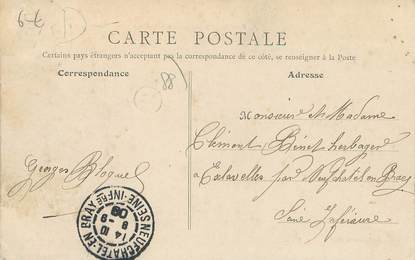 9-€ D
CARTE POSTALE
Certains pays étrangers n'acceptant pas la correspondance de ce côté, se renseigner à la Poste
Correspondance
Adresse
88
Monsieur et Madame
Clément Binet herbager
à Esclavelles par Neufchâtel en Bray
Seine Inférieure
Georges
NEUFCHATEL-EN-BRAY
SEINE-INFRE
09